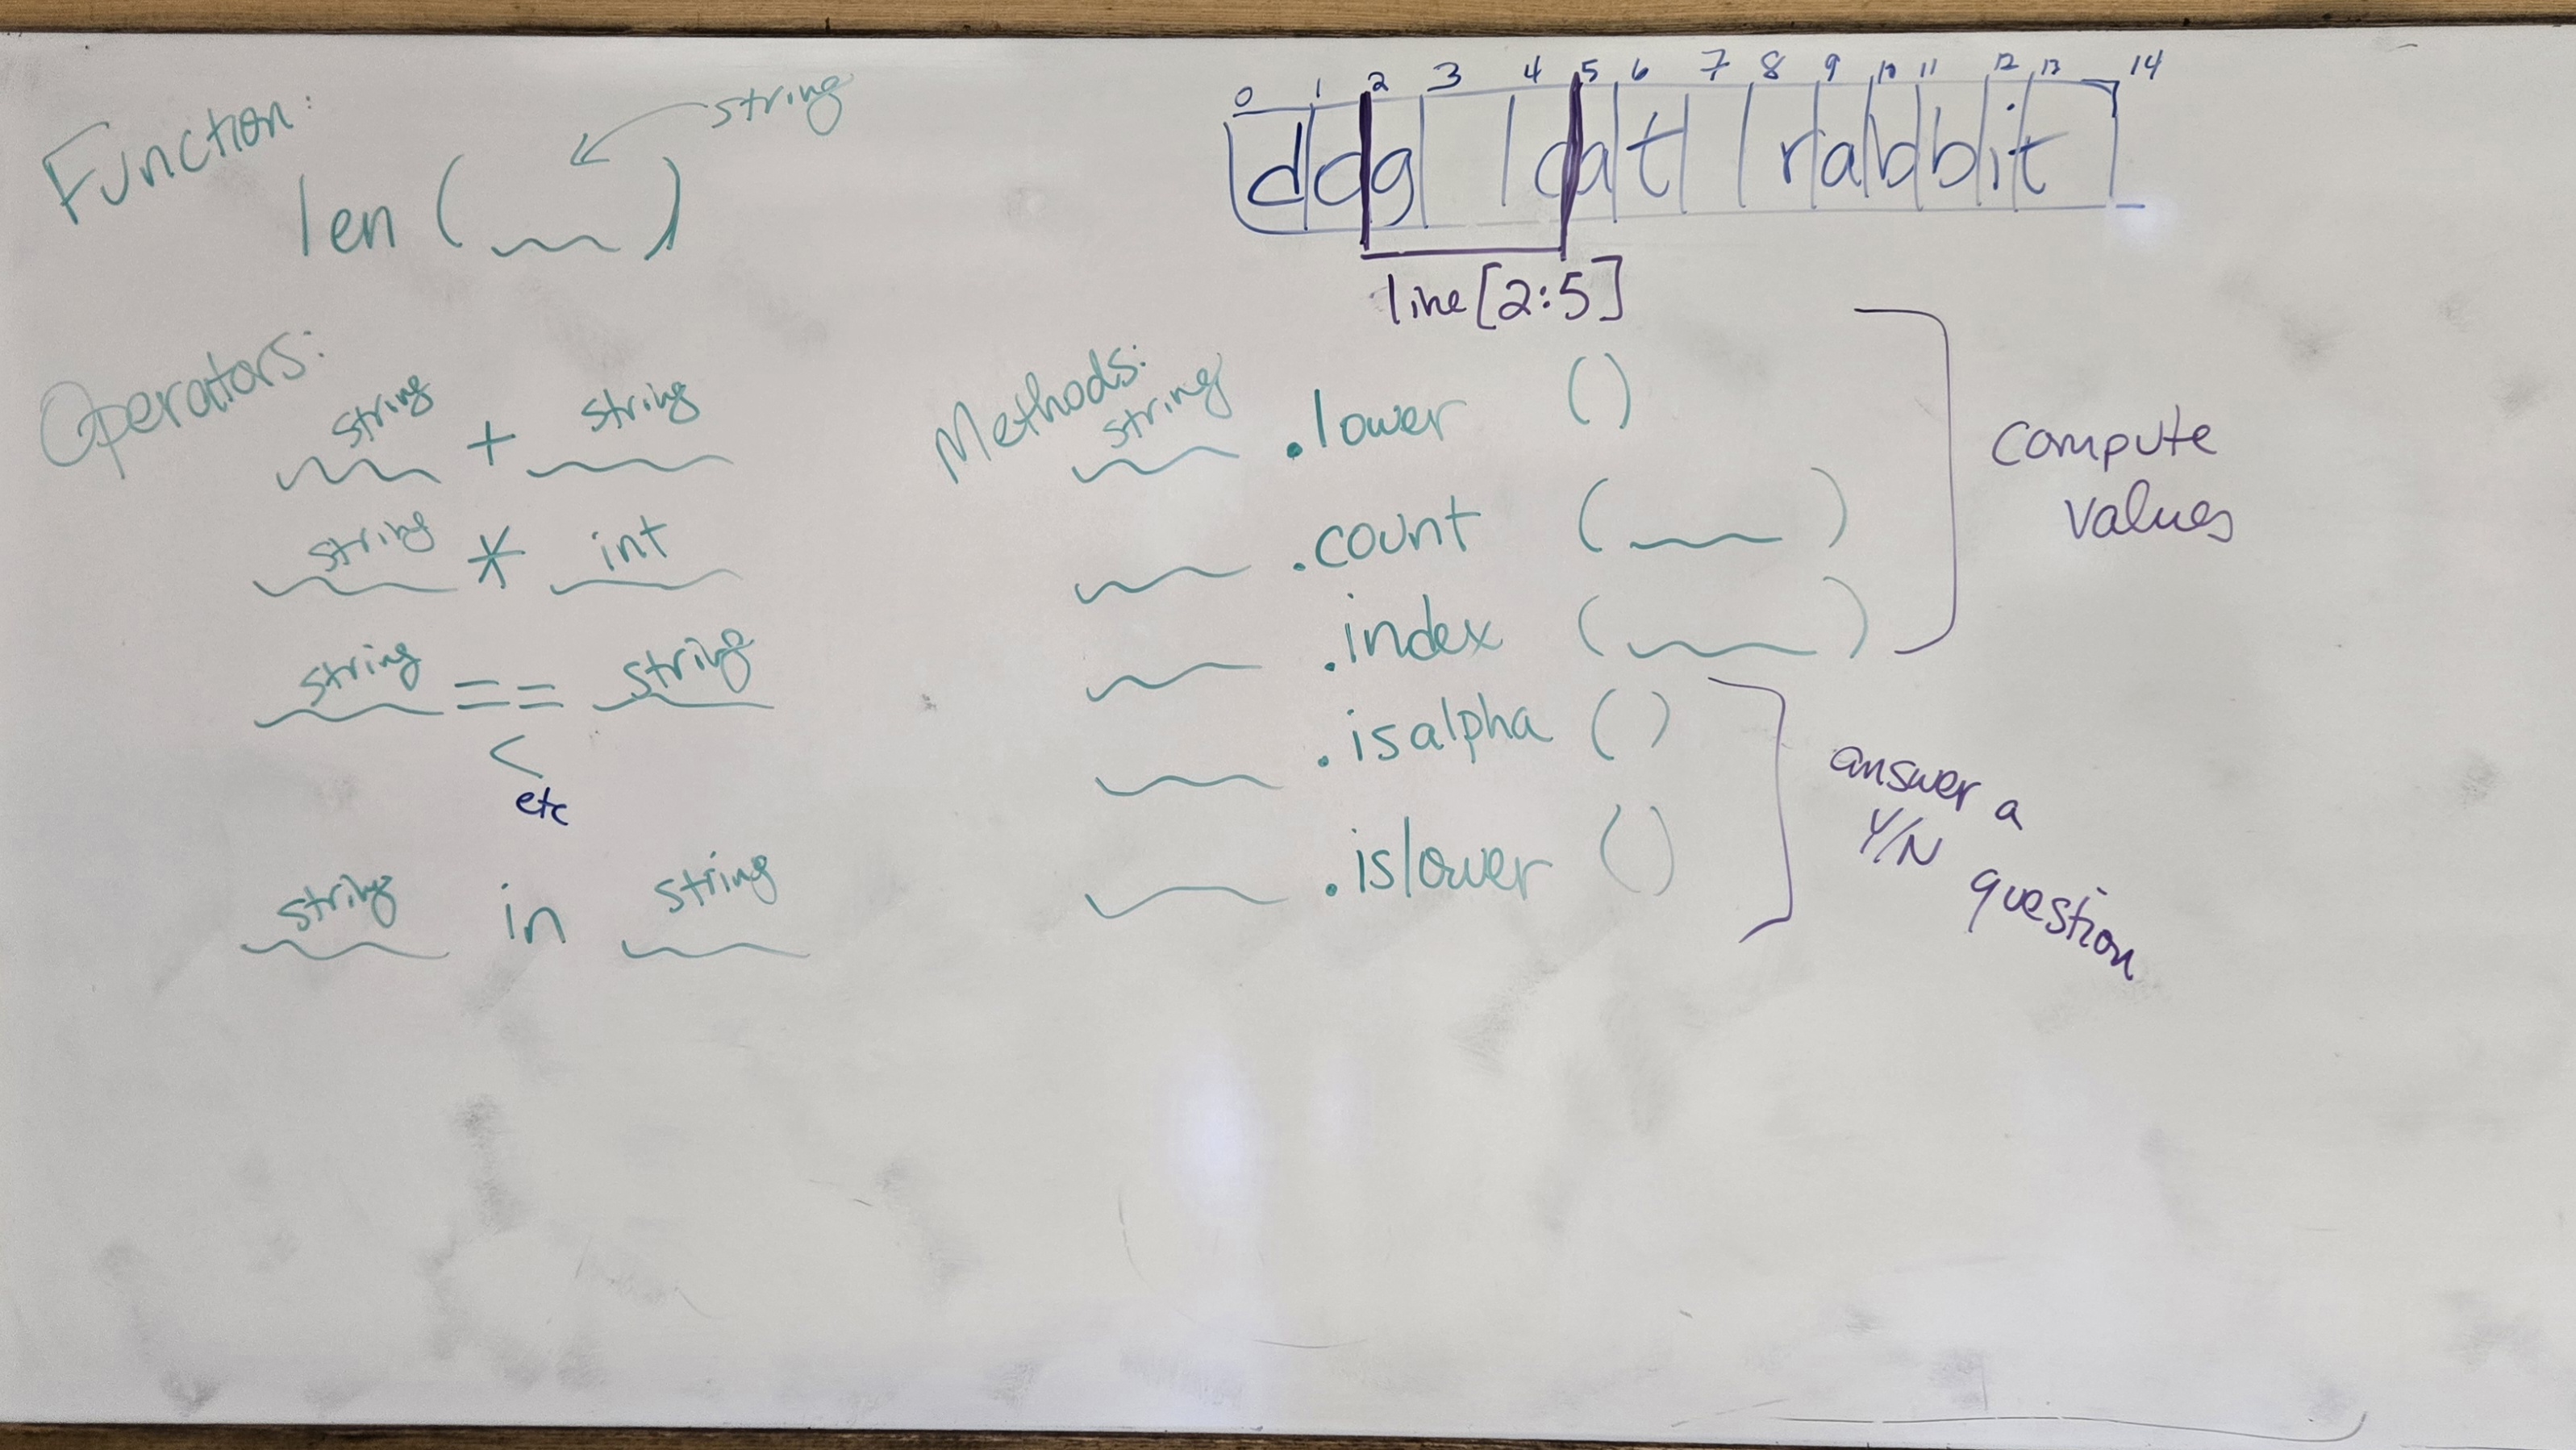 Function:
string
len ( )
0 1 2 3 4 5 6 7 8 9 10 11 12 13 14
dog cat rabbit
line[2:5]
Operators:
string + string
string * int
string == string
<
etc
string in string
Methods:
string .lower ()
.count ( )
.index ( )
.isalpha ()
.islower ()
compute
values
answer a
Y/N question